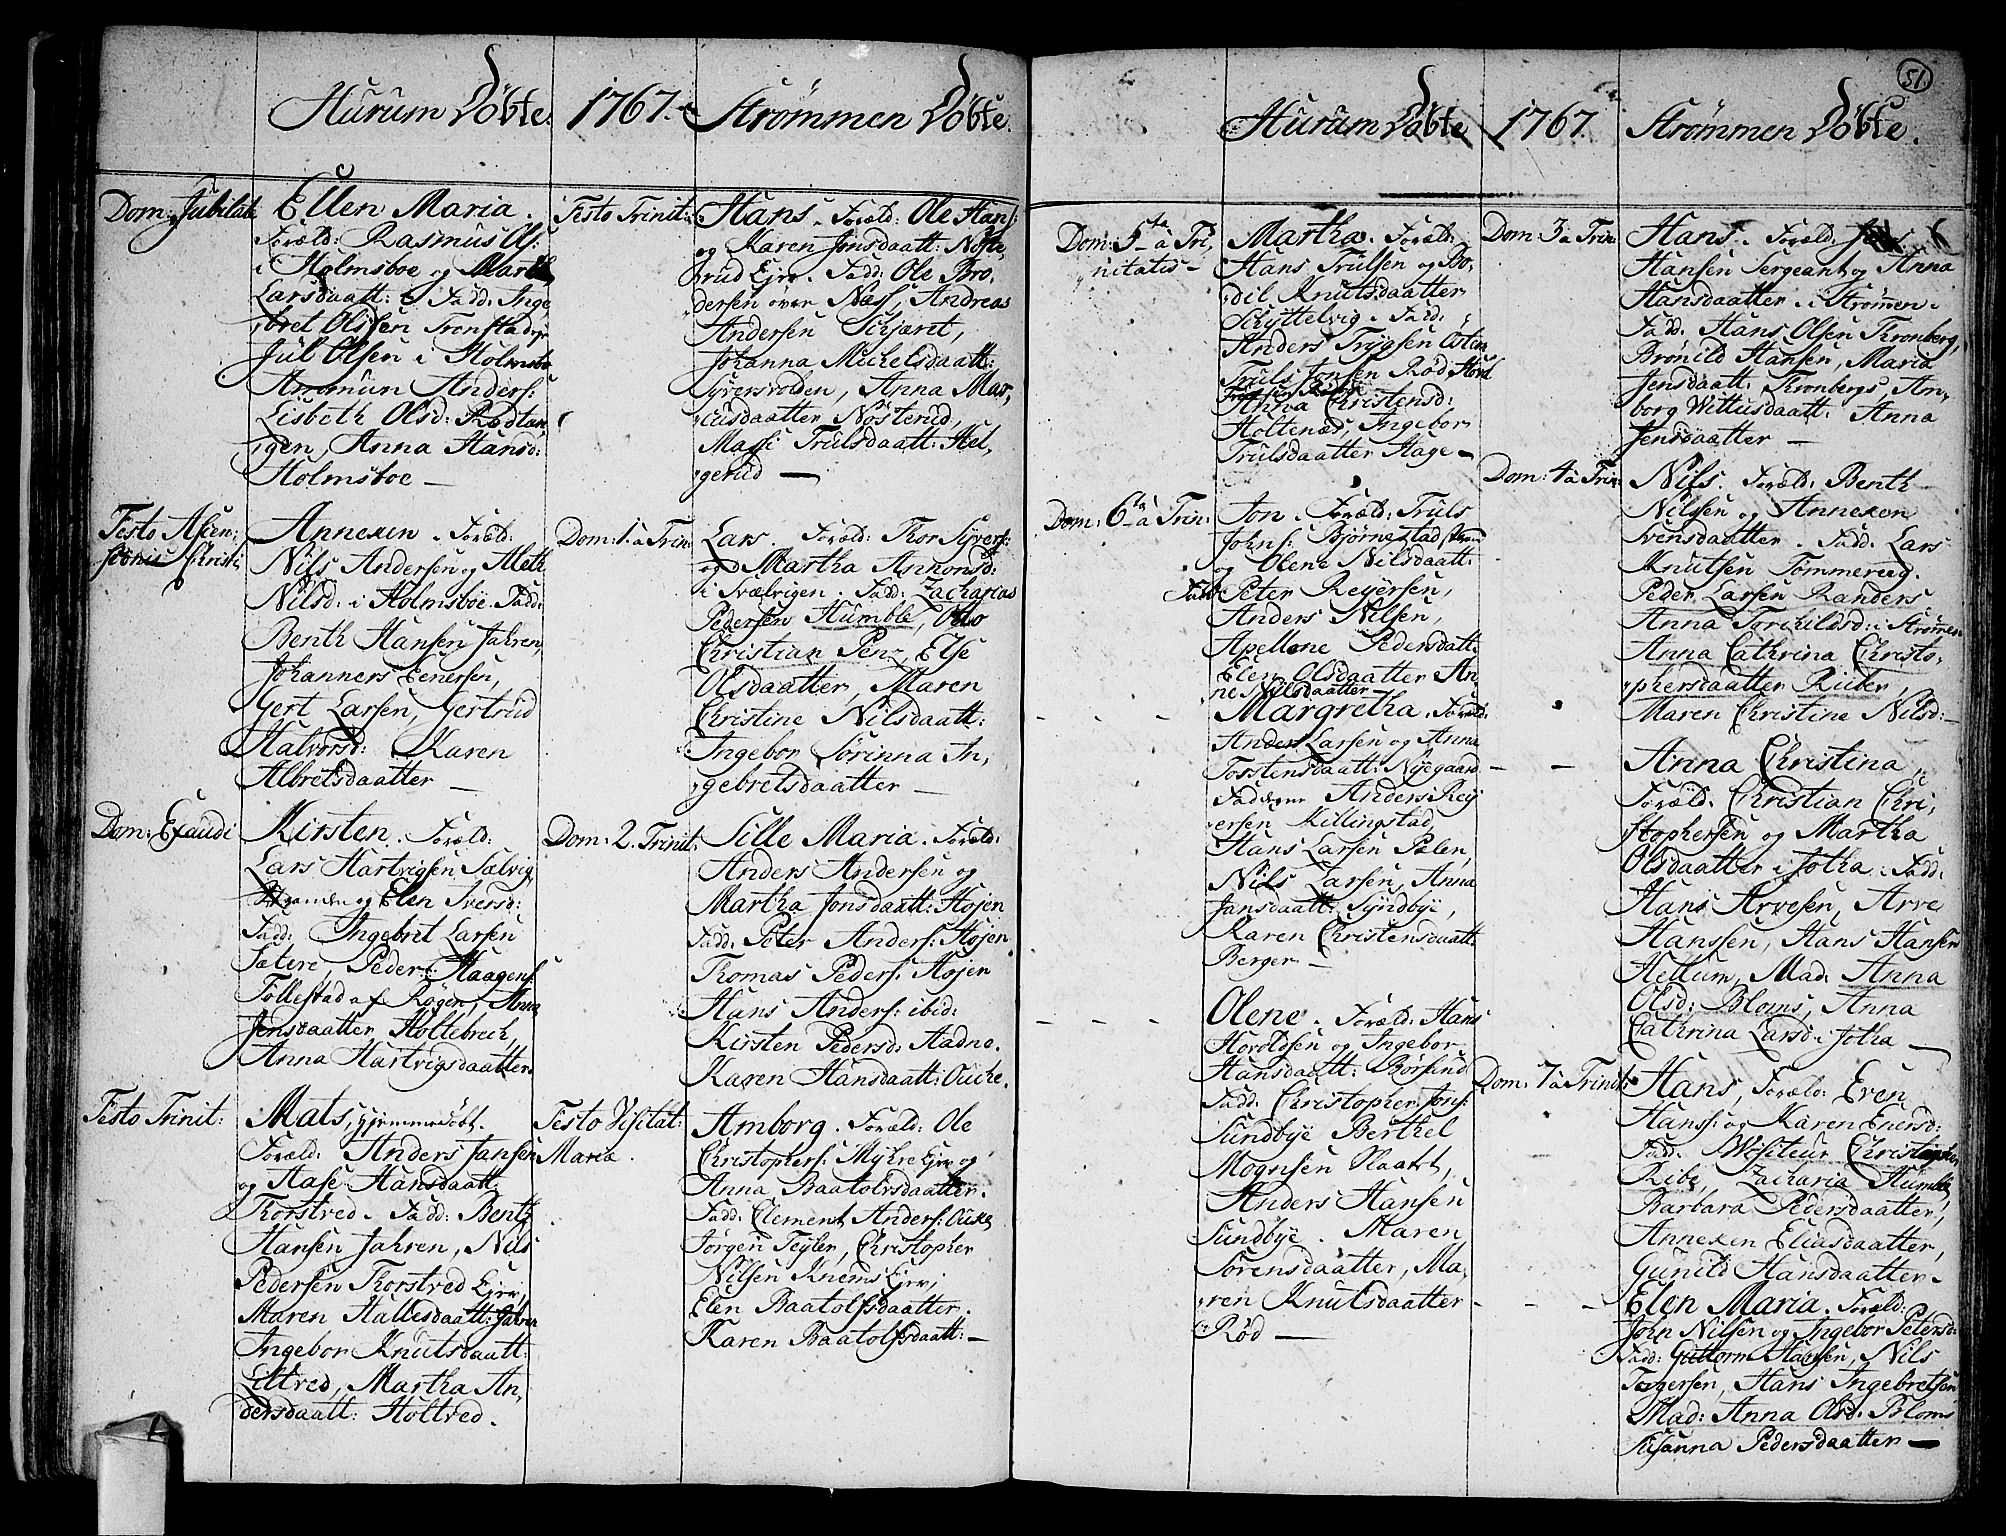 Hurum Döbte. 1767. Strømmen Döbte.
Dom: Jubilate
Ellen Maria.
Foræld: Rasmus Ols:
i Holmsboe og Marthe
Larsdaatt: Fadd: Inge
bret Olssen Tronstad
Jul Olsen i Holmsboe
Ammun Anders:
Lisbeth Olsd: Rødtan,
gen, Anna Hansd:
Holmsboe —
Festo Ascen:
sionis Christi
Anneken. Foræld:
Nils Andersen og Aleth
Nilsd: i Holmsboe. Fadd:
Benth Hansen Jahren,
Johannes Enersen,
Gert Larsen, Gertrud
Halvorsd: Karen
Albretsdaatter —
Dom: Exaudi
Kirsten. Foræld:
Lars Hartvigsen Sælvig
og Elen Iversd:
Fadd: Ingebrit Larsen
Sætere, Peder Haagens:
Follestad af Røgen, Anna
Jensdaatter Holtebrech,
Anna Hartvigsdaatter.
Festo Trinit:
Mats, hjemmedöbt.
Foræld: Anders Jansen
og Aase Hansdaatt:
Thorstred. Fadd: Benth
Hansen Jahren, Nils
Pedersen Thorstred Ejer,
Maren Hallesdaatt: Jahren
Ingebor Knutsdaatt:
Eltred, Martha An,
dersdaatt: Holtred.
Festo Trinit:
Hans. Foræld: Ole Hans:
og Karen Jonsdaatt: Nøste
brud Ejer. Fadd: Ole Bro,
dersen over Næss, Andreas
Andersen Schjæret,
Johanna Michelsdaatt:
Syversvolden, Anna Mar,
cusdaatter Nøsterud,
Massi Trulsdaatt: Hel,
gerud —
Dom: 1. a Trin:
Lars. Foræld: Thor Syvers:
og Martha Annonsd:
i Svælvigen. Fadd: Zacharias
Pedersen Humble, Otto
Christian Penz, Else
Olsdaatter, Maren
Christine Nilsdaatt:
Ingebor Sørinna In,
gebretsdaatter —
Dom: 2. Trinit:
Sille Maria. Foræld:
Anders Andersen og
Martha Jonsdaatt: Højen
Fadd: Peter Anders: Højen
Thomas Peders: Højen
Hans Anders: ibid:
Kirsten Pedersd: Aadne.
Karen Hansdaatt: Oucke.
Festo Visitat:
Maria.
Amborg. Foræld: Ole
Christophers: Myhre Ejer og
Anna Baatolvsdaatter.
Fadd: Clement Anders: Oucke
Jørgen Tejler, Christopher
Nilsen Knems Ejer,
Elen Baatolfsdaatter.
Karen Baatolfsdaatt: —
51
Hurum Döbte 1767. Strømmen Döbte.
Dom: 5ta a Tri,
nitatis —
Martha. Foræld:
Hans Trulsen og Bo,
dil Knutsdaatter
Schÿttelvig. Fadd:
Anders Trygsen
Truls Jonsen Rød,
Anna Christensd:
Holtenæs, Ingebor
Trulsdaatter Hage —
Dom: 6ta a Trin:
Jon. Foræld: Truls
Johns: Bjørnestad
og Olene Nilsdaatt:
Fadd: Peter Reyersen,
Anders Nilsen,
Apellone Pedersdatt:
Elen Olsdaatter An
ne Nilsdaatter
- - - Margretha. Foræld:
Anders Larsen og Anna
Torstensdaatt: Nyegaard
Faddrene Anders Rey
ersen Killingstad,
Hans Larsen Pælen,
Nils Larsen, Anna
Jansdaatt: Syndbye,
Karen Christensdaatt:
Berger —
- - - Olene. Foræld: Hans
Horoldsen og Ingebor
Hansdaatt: Børsund
Fadd: Christopher Jons:
Sundbye Berthel
Mognsen Kaatet,
Anders Hansen
Sundbye. Maren
Sørensdaatter, Ma,
ren Knutsdaatter
Rød —
Dom: 3 a Trin:
Hans. Foræld:
Hansen Sergeant og Anna
Hansdaatter i Strømen.
Fadd: Hans Olsen Kronberg,
Brønild Hansen, Maria
Jensdaatt: Kronbergs, Am,
borg Wittusdaatt: Anna
Jensdaatter —
Dom: 4 a Trin:
Nils. Foræld: Benth
Nilsen og Anneken
Svensdaatter. Fadd: Lars
Knutsen Tømmeraeg.
Peder Larsen Randers
Anna Torchildsd: i Strømen
Anna Cathrina Christo,
phersdaatter Riiber,
Maren Christine Nilsd: —
- - Anna Christina,
Foræld: Christian Chri,
stophersen og Martha
Olsdaatter i Jotha. Fadd:
Hans Arvesen, Arve
Hanssen, Hans Hansen
Hellum, Mad: Anna
Olsd: Bloms, Anna
Cathrina Larsd: i Jotha —
Dom: 7 a Trinit:
Hans, Foræld: Even
Hanss: og Karen Enersd:
Fadd: Visiteur Christopher
Ribe, Zacharia Humble
Barbara Pedersdaatter,
Anneken Eliasdaatter,
Gunild Hansdaatter.
- - - Elen Maria. Foræld:
John Nilsen og Ingebor Petersd:
Fadd: Guttorm Hansen, Nils
Torgersen, Hans Ingebretsen
Mad: Anna Olsd: Bloms
Susanna Pedersdaatter —